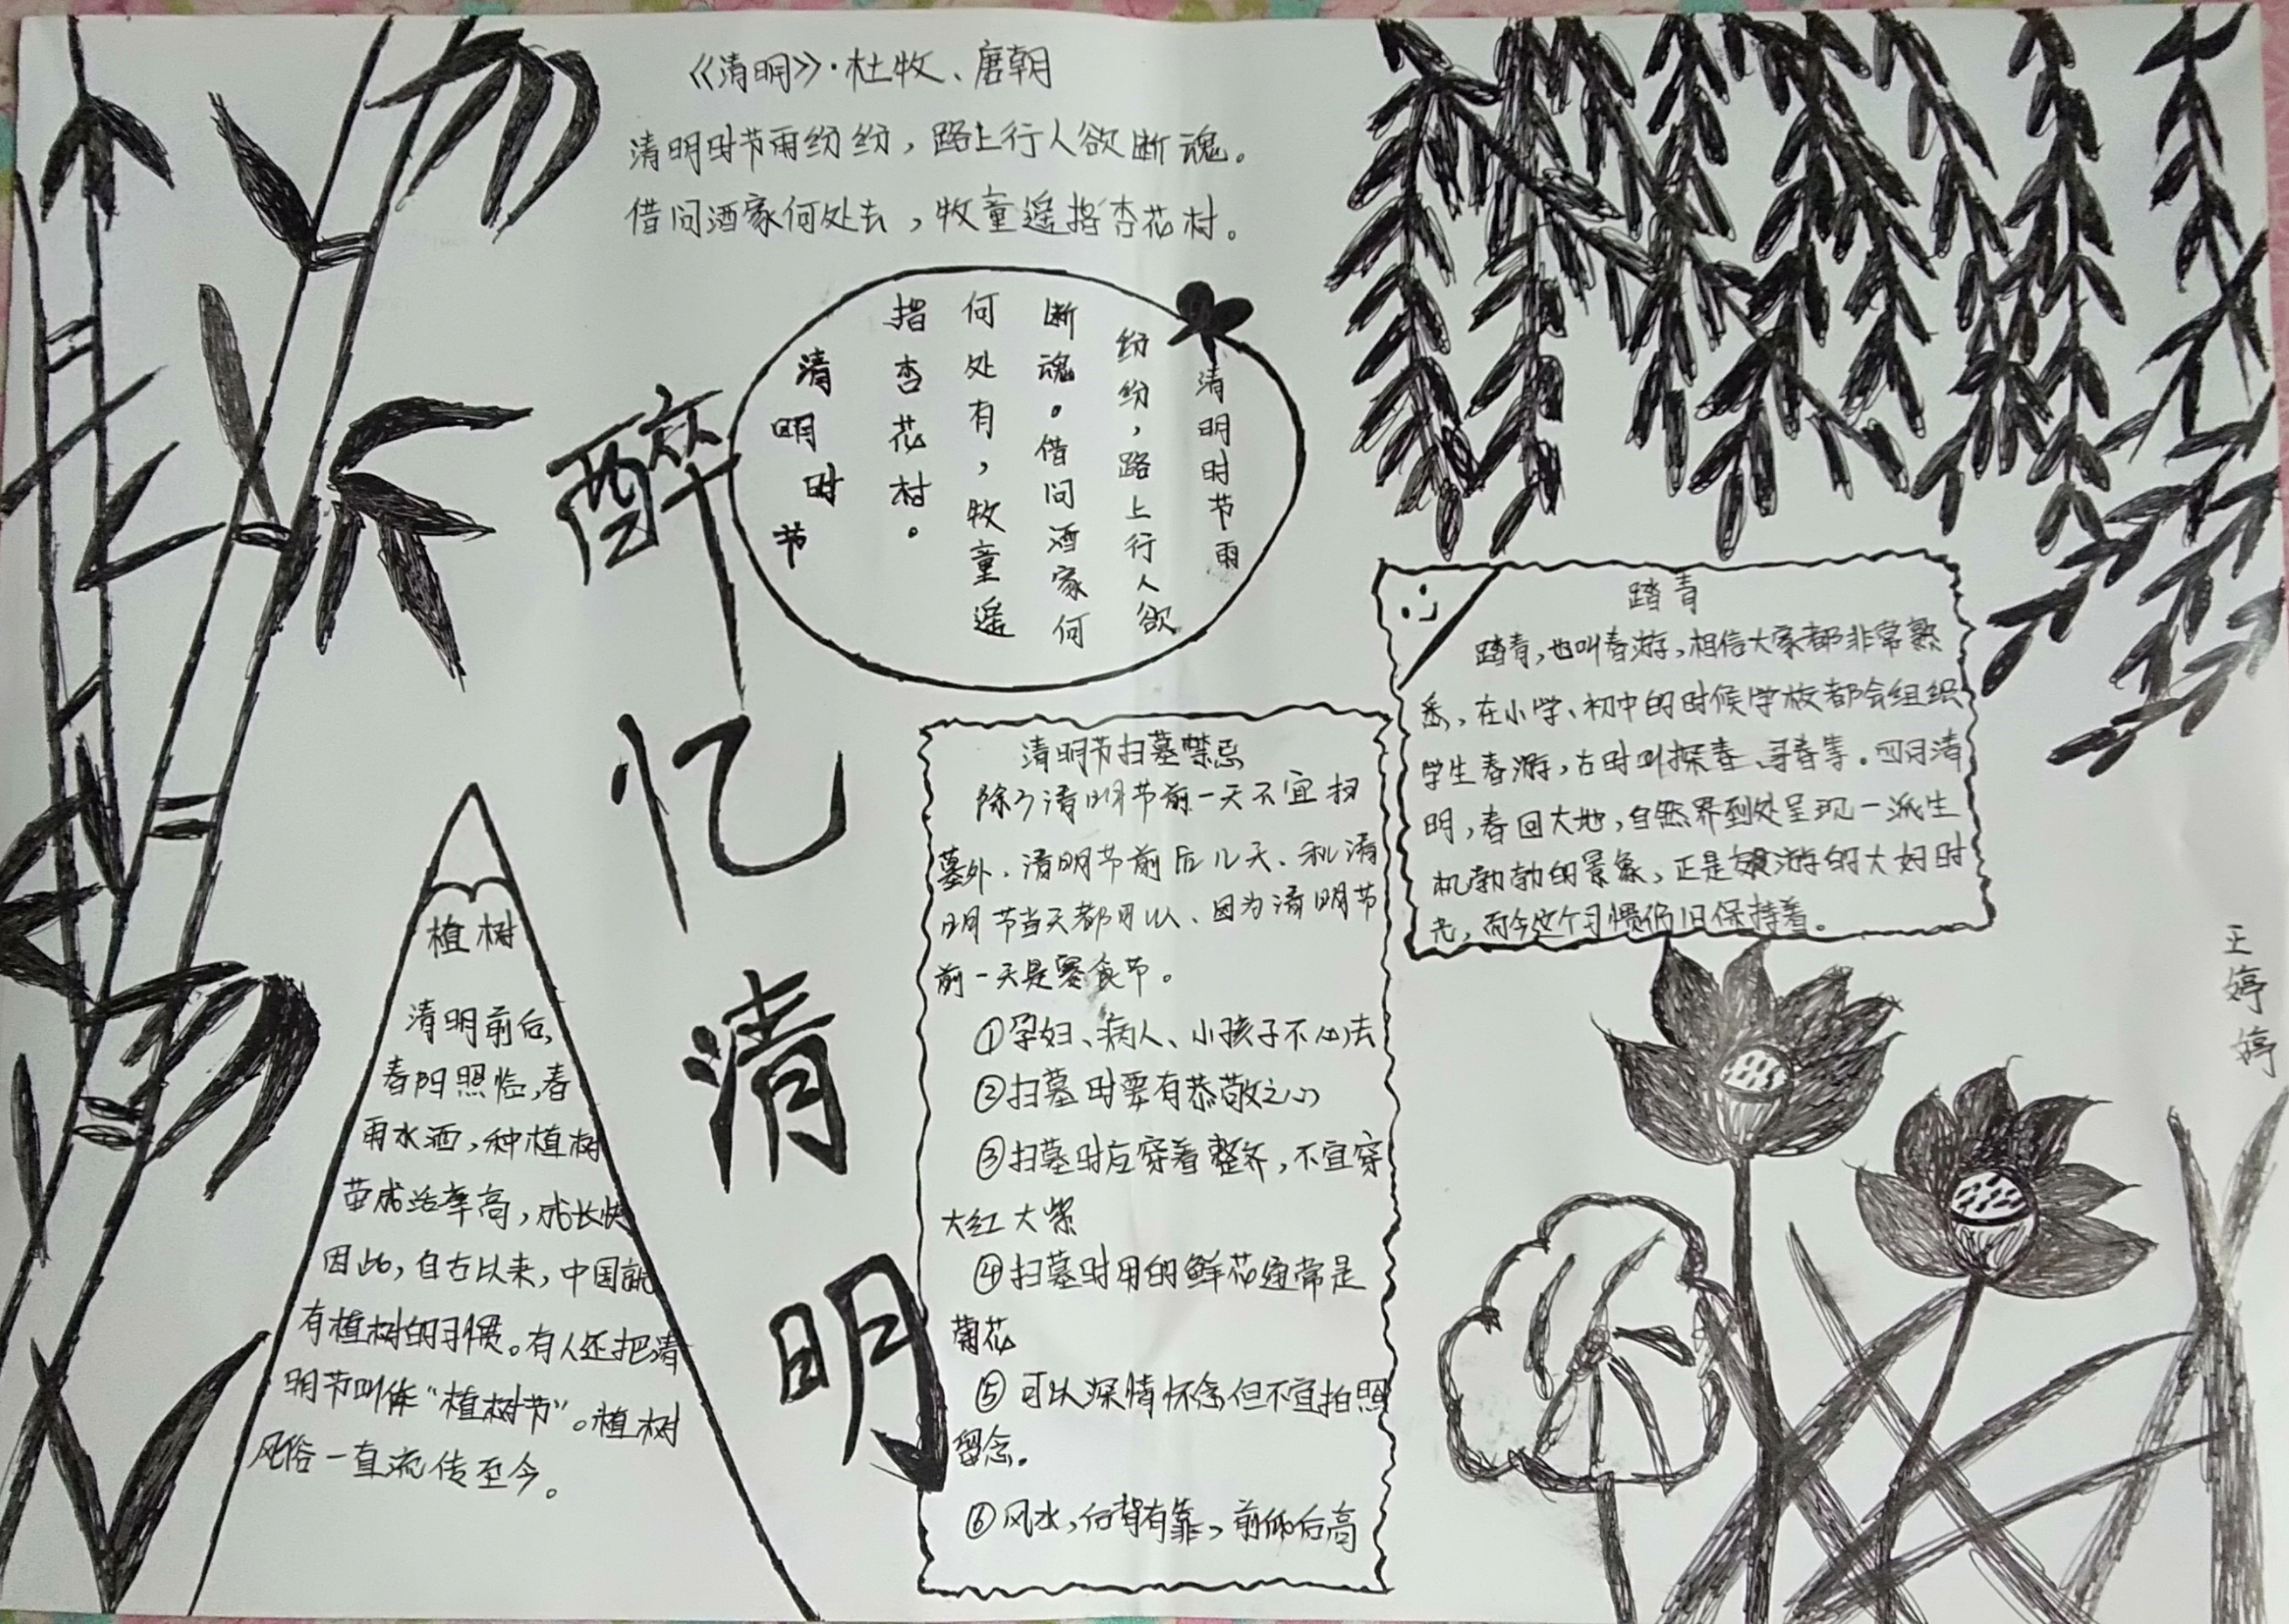 《清明》·杜牧、唐朝
清明时节雨纷纷，路上行人欲断魂。
借问酒家何处去，牧童遥指杏花村。
清明时节雨
纷纷，路上行人欲
断魂。借问酒家何
何处有，牧童遥
指杏花村。
清明时节
醉忆清明
踏青
踏青，也叫春游，相信大家都非常熟
悉，在小学、初中的时候学校都会组织
学生春游，古时叫探春、寻春等。四月清
明，春回大地，自然界到处呈现一派生
机勃勃的景象，正是娱游的大好时
光，而今这个习惯仍旧保持着。
清明节扫墓禁忌
除了清明节前一天不宜扫
墓外、清明节前后几天、和清
明节当天都可以、因为清明节
前一天是寒食节。
①孕妇、病人、小孩子不必去
②扫墓时要有恭敬之心
③扫墓时应穿着整齐，不宜穿
大红大紫
④扫墓时用的鲜花通常是
菊花
⑤可以深情怀念但不宜拍照
留念。
⑥风水，后背有靠，前低后高
植树
清明前后，
春阳照临，春
雨水洒，种植树
苗成活率高，成长快
因此，自古以来，中国就
有植树的习惯。有人还把清
明节叫作“植树节”。植树
风俗一直流传至今。
王婷婷